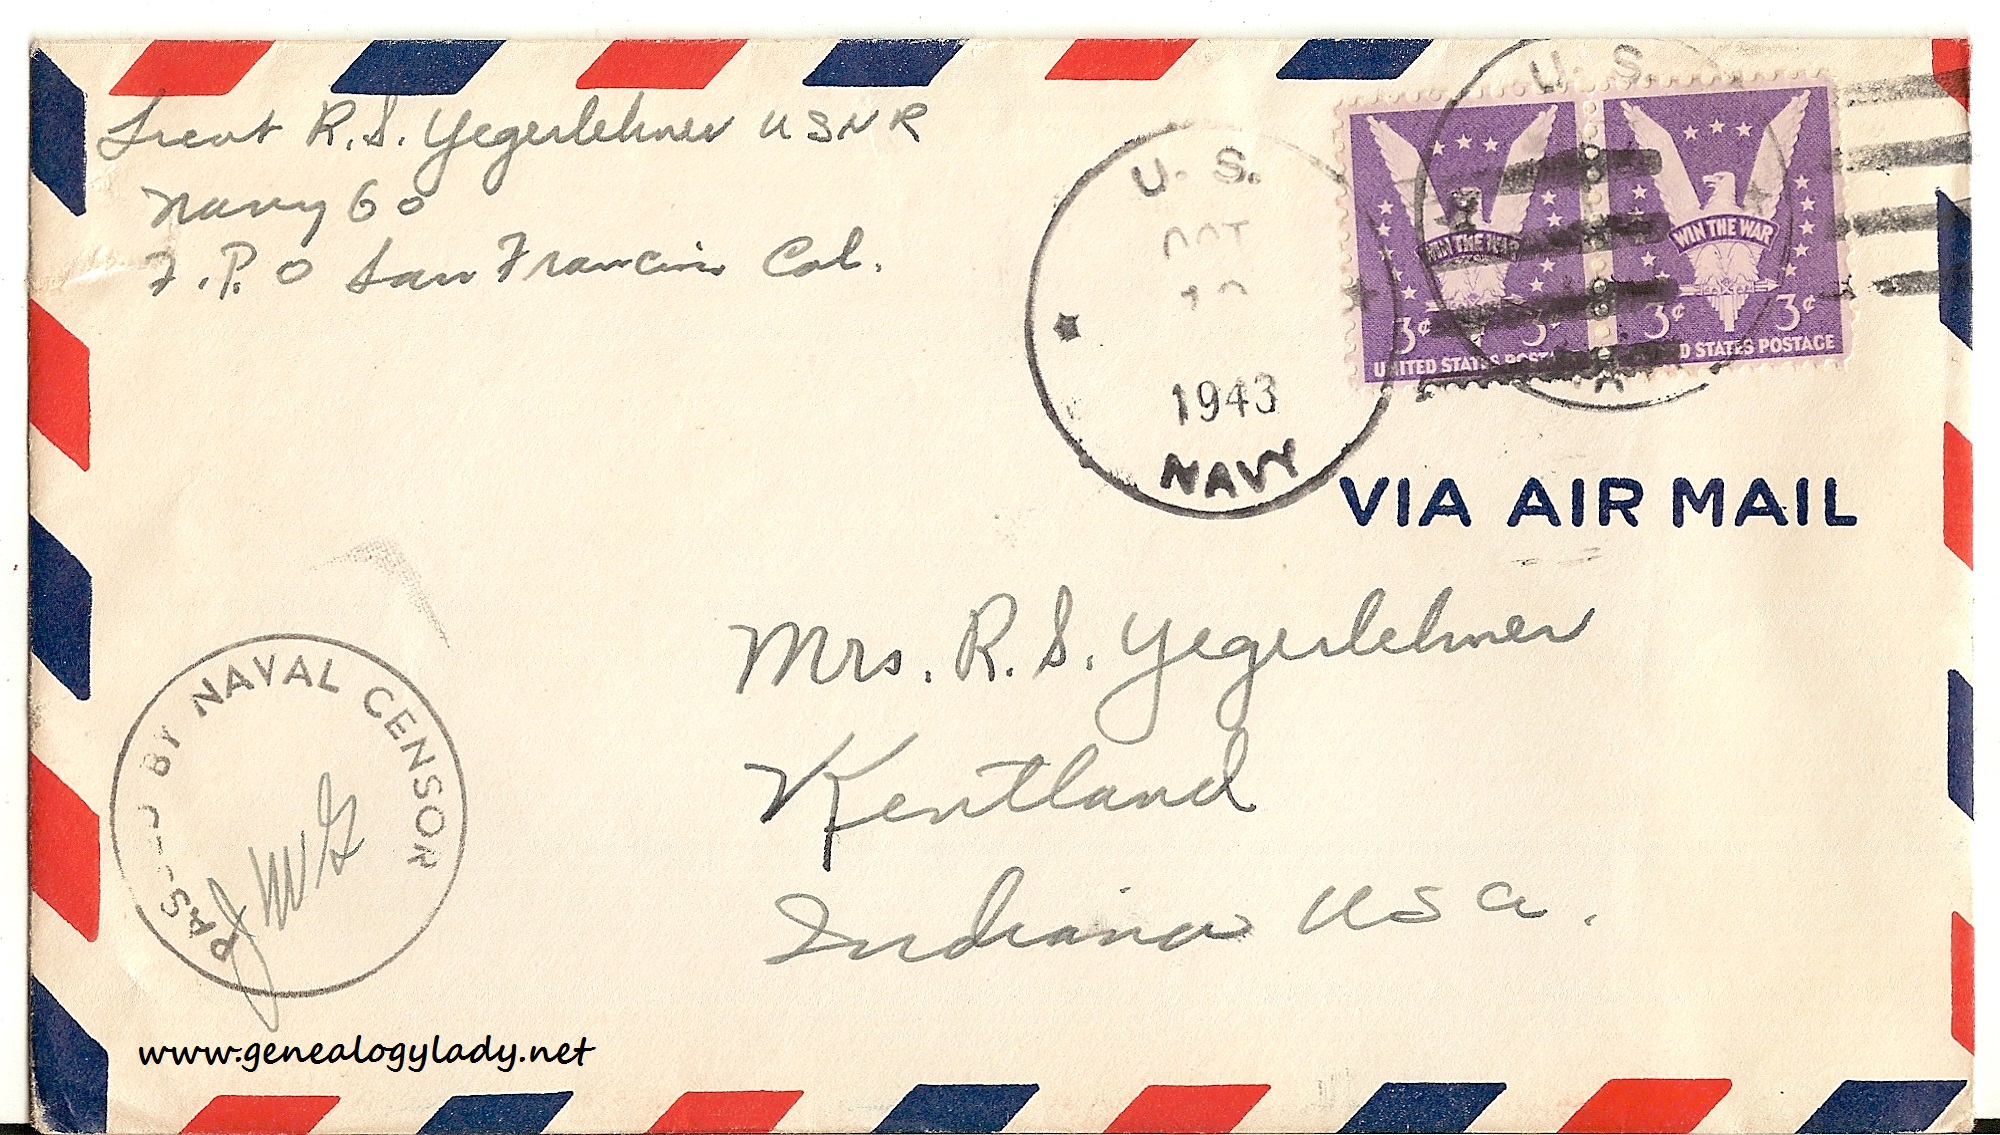 Lieut R.S. Yegerlehner USNR
Navy 60
F.P.O San Francisco Cal.
U.S.
OCT
1943
NAVY
U.S.
WIN THE WAR
3¢ 3¢
UNITED STATES POSTAGE
WIN THE WAR
3¢ 3¢
STATES POSTAGE
VIA AIR MAIL
Mrs. R.S. Yegerlehner
Kentland
Indiana USA.
PASSED BY NAVAL CENSOR
JWG
www.genealogylady.net